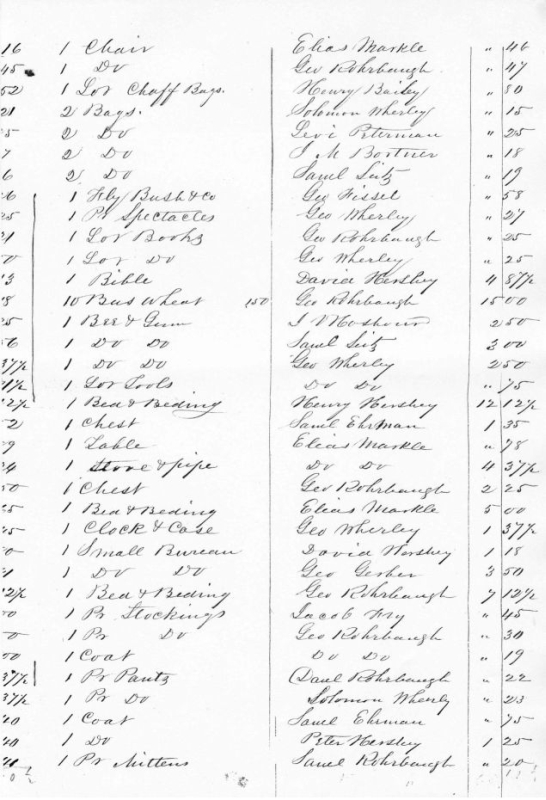 16 1 Chair Elias Markle " 46
45 1 Do Geo Rohrbaugh " 47
52 1 Lot Chaff Bags. Henry Bailey " 80
21 2 Bags. Solomon Wherley " 15
5 2 Do Levi Peterman " 25
7 2 Do J M Bortner " 18
6 2 Do Saml Seitz " 19
6 1 Fly Bush & Co Geo Fissel " 58
5 1 Pr Spectacles Geo Wherley " 27
1 1 Lot Books Geo Rohrbaugh " 25
0 1 Lot Do Geo Wherley " 25
3 1 Bible David Hershey 4 87½
8 10 Bus Wheat 150 Geo Rohrbaugh 15 00
5 1 Bee & Gum J V 2 50
6 1 Do Do Saml Seitz 3 00
37½ 1 Do Do Geo Wherley 2 50
1½ 1 Lot Tools Do Do " 75
2½ 1 Bed & Beding Henry Hershey 12 12½
2 1 Chest Saml Ehrman 1 35
9 1 Table Elias Markle " 78
4 1 Stove & pipe Do Do 4 37½
50 1 Chest Geo Rohrbaugh 2 25
5 1 Bed & Beding Elias Markle 5 00
5 1 Clock & Case Geo Wherley 1 37½
0 1 Small Bureau David Hershey 1 18
1 1 Do Do Geo Gerber 3 50
2½ 1 Bed & Beding Geo Rohrbaugh 7 12½
0 1 Pr Stockings Jacob Fry " 45
0 1 Pr Do Geo Rohrbaugh " 30
00 1 Coat Do Do " 19
37½ 1 Pr Pants Danl Rohrbaugh " 22
37½ 1 Pr Do Solomon Wherly " 23
40 1 Coat Samel Ehrman " 75
40 1 Do Peter Hershey 1 25
1 Pr Mittens Samel Rohrbaugh " 20